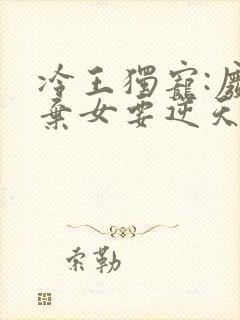 冷王獨寵:廢
棄女要逆天
索勒